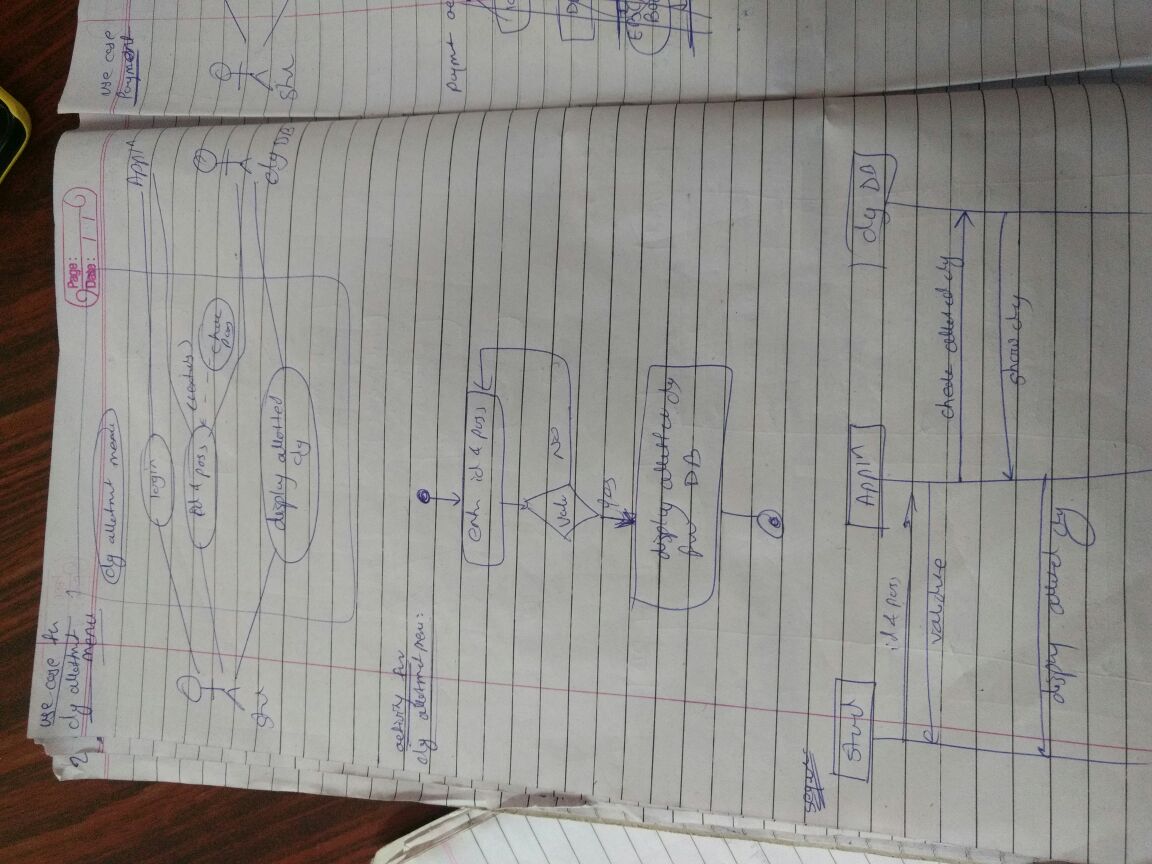 2.
use case for
clg allotmt
menu
Page:
Date: / /
clg allotmt menu
login
Appln
id & pass
(extends)
check
pass
Stu
display allotted
clg
clg DB
activity for
clg allotmt menu:
enter id & pass
Valid
No
Yes
display allotted clg
for DB
sequ
Stud
Appln
clg DB
id & pass
validate
check allotted clg
show clg
display allotted clg
use case
Payment
Stu
Paymt ac